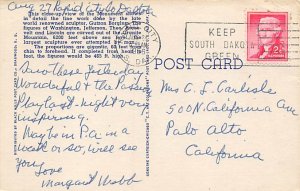 Aug 27 Rapid City So. Dak
This close-up view of the Monument shows
in detail the fine work done by the late
world famous sculptor, Gutzon Borglum. The
figures of Washington, Jefferson, Theo. Roosevelt
and Lincoln are carved out of the Granite
Mountain, 6200 feet above sea level, the
largest sculpture ever attempted by man.
The proportions are gigantic, 60 feet from
chin to forehead. If completed from head to
foot, the figures would be 465 ft. high.
KEEP
SOUTH DAKOTA
GREEN
2¢
POST CARD
Saw these yesterday
Wonderful & the Passion
Play last night very
inspiring.
Maybe in P.a. in a
week or so, will see
you
Love
Margaret Webb
Mrs C. L. Carlisle
500 N. California Ave
Palo Alto
California